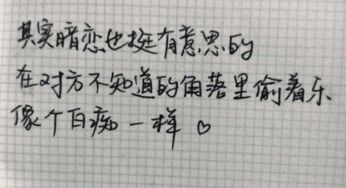 其实暗恋也挺有意思的
在对方不知道的角落里偷着乐
像个白痴一样 ♡